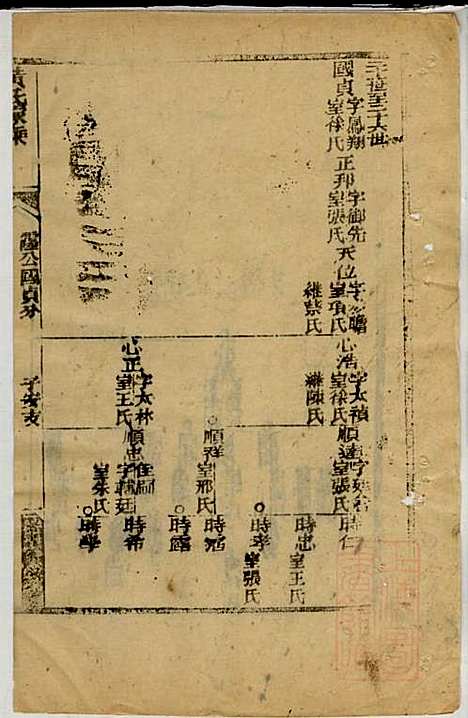 二十世至二十六世
國貞 字鳳翔 室徐氏
正邦 字御先 室張氏
天位 字 瞻 室項氏 繼蔡氏
心浩 字太禎 室徐氏 繼陳氏
順達 字 室張氏
時仁
時忠 室王氏
時孝 室張氏
順祥 室邢氏
時
時露
心正 字太林 室王氏
順忠 字 廷 室朱氏
時希
時學
黃氏宗譜
公國貞分
子安支